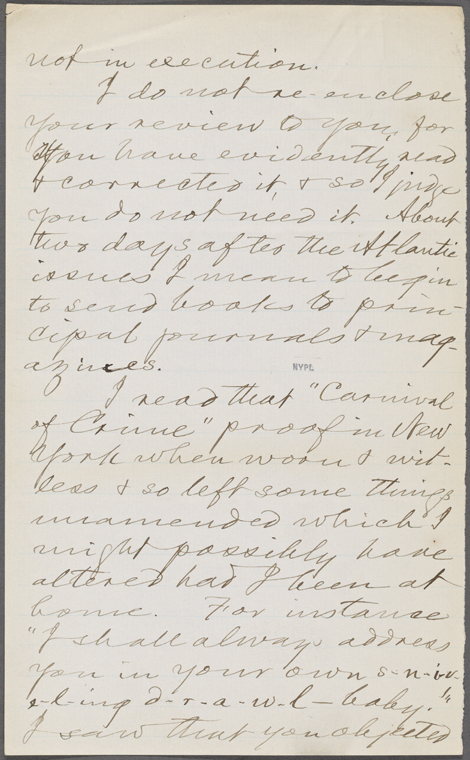 not in execution.
I do not re-enclose
your review to you, for
you have evidently read
& corrected it, & so I judge
you do not need it. About
two days after the Atlantic
issues I mean to begin
to send books to prin-
cipal journals & mag-
azines.
NYPL
I read that "Carnival
of Crime" proof in New
York when worn & wit-
less & so left some things
unamended which I
might possibly have
altered had I been at
home. For instance
"I shall always address
you in your own s-n-i-v-
e-l-ing d-r-a-w-l—baby!"
I saw that you objected